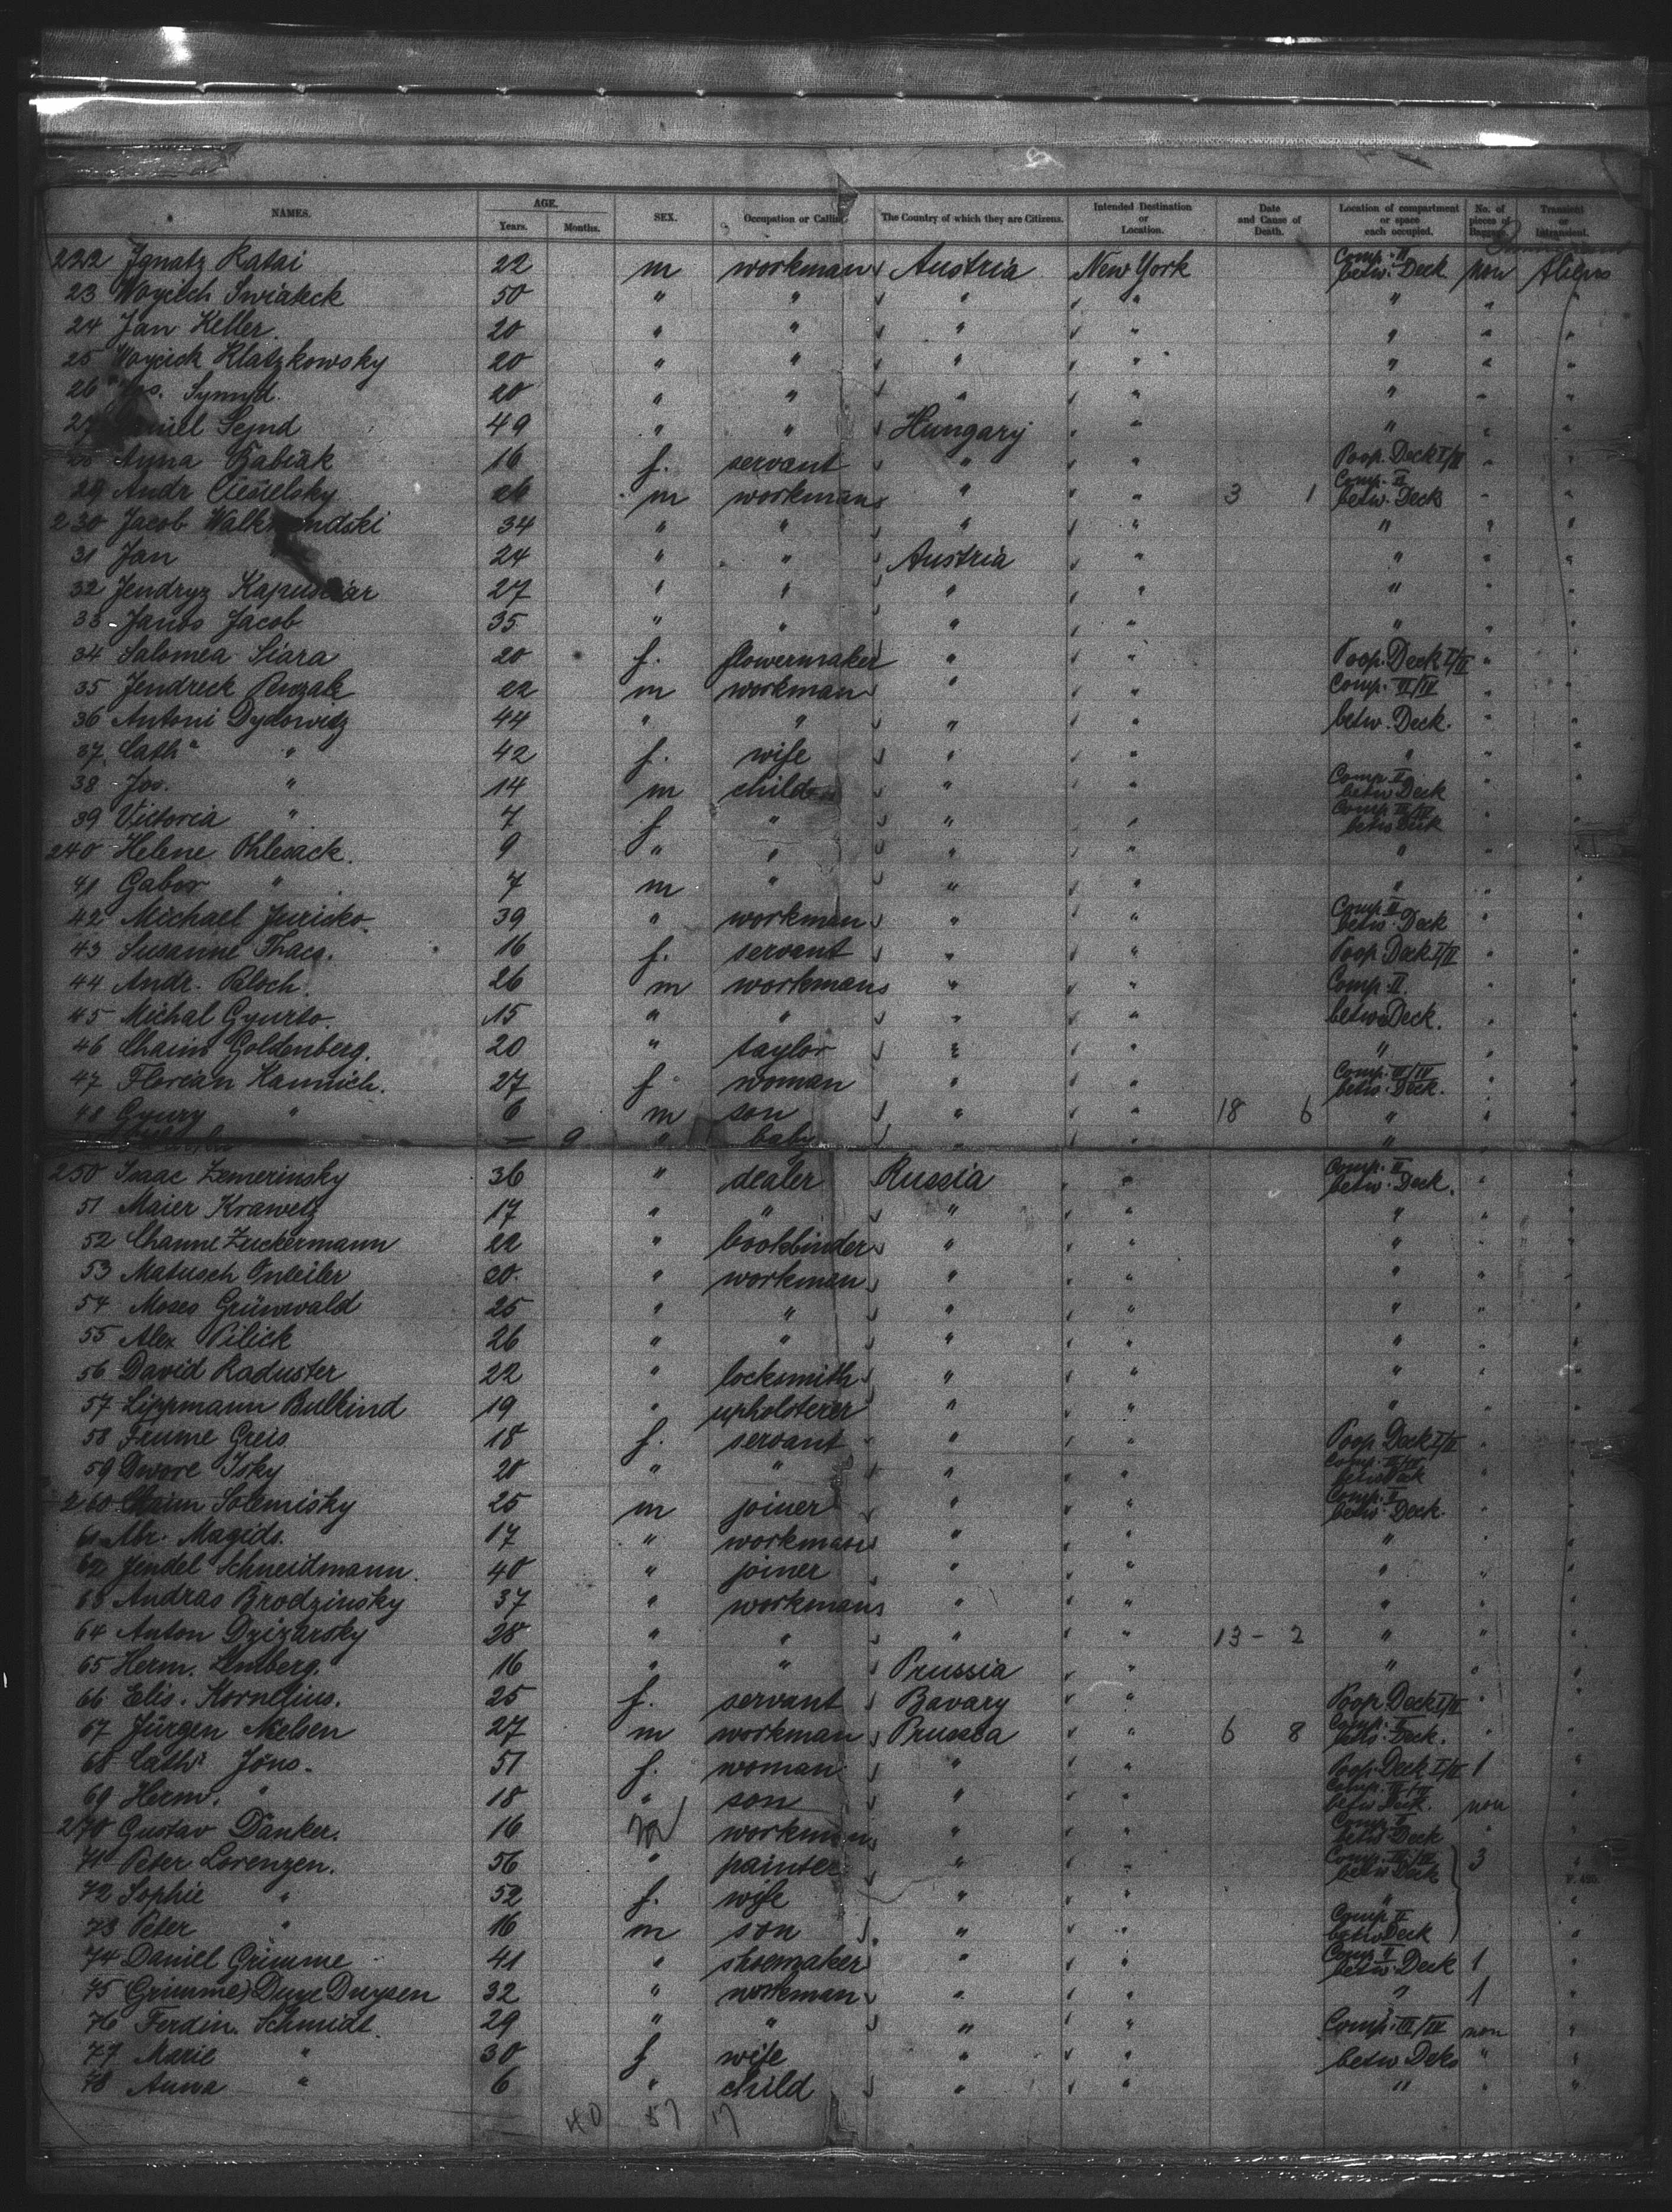 NAMES. AGE. Years. Months. SEX. Occupation or Calling. The Country of which they are Citizens. Intended Destination or Location. Date and Cause of Death. Location of compartment or space each occupied. No. of pieces of Baggage. Transient or Intransient.
222 Ignatz Katai 22 m workman Austria New York Comp. II betw. Deck non
23 Woyciech Swiateck 50 " " " " " " "
24 Jan Keller 20 " " " " " " "
25 Woycick Klatzkowsky 20 " " " " " " "
26 20 " " " " " " "
27 Sejnd 49 " " Hungary " " " "
Anna Babiak 16 f. servant " " Poop. Deck I/II " "
29 Andr Ciesielsky m workman " " 3 1 Comp. II betw. Deck " "
230 Jacob 34 " " " " " " "
31 Jan 24 " " Austria " " " "
32 Jendryz 27 " " " " " " "
33 Janos Jacob 35 " " " " " " "
34 Salomea Siara 20 f. flowermaker " " Poop. Deck I/II " "
35 Jendreck 22 m workman " " Comp. III/IV " "
36 Antoni Dydowitz 44 " " " " betw. Deck. " "
37 Cath " 42 f. wife " " " " "
38 Jos. " 14 m child " " Comp. II betw Deck " "
39 Victoria " 7 f " " " Comp III/IV betw Deck " "
240 Helene Ohlesack. 9 " " " " " " "
41 Gabor " 7 m " " " " " "
42 Michael Juricko 39 " workman " " Comp II betw. Deck " "
43 Susanne 16 f. servant " " Poop Deck I/II " "
44 Andr. Bloch. 26 m workman " " Comp. II. " "
45 Michal Gyurto. 15 " " " " betw Deck. " "
46 Chaim Goldenberg. 20 " taylor " " " " "
47 Florian Kannich. 27 f woman " " Comp. III/IV betw. Deck. " "
48 Gyury " 6 m son " " 18 6 " " "
— 9 " baby " " " "
250 Isaac Zemerinsky 36 " dealer Russia " Comp. II betw. Deck. " "
51 Maier Krawetz 17 " " " " " " "
52 Channe Zuckermann 22 " bookbinder " " " " "
53 Matusch 20. " workman " " " " "
54 Moses Grünwald 25 " " " " " " "
55 Alex Pilick 26 " " " " " " "
56 David Raduster 22 " locksmith " " " " "
57 Lippmann Bulkind 19 " upholsterer " " " " "
58 Frume Greis 18 f. servant " " Poop Deck I/II " "
59 Dwore Isky 20 " " " " Comp. III/IV betw Deck " "
260 Chaim Solemisky 25 m joiner " " Comp. II betw. Deck. " "
61 Abr. Magids. 17 " workman " " " " "
62 Jendel Schneidmann. 40 " joiner " " " " "
63 Andras Brodzinsky 37 " workman " " " " "
64 Anton Dzizarsky 28 " " " " 13 - 2 " " "
65 Herm. Lemberg. 16 " " Prussia " " " "
66 Elis. Kornelius. 25 f. servant Bavary " Poop Deck I/II " "
67 Jürgen Nielsen 27 m workman Prussia " 6 8 Comp. II betw. Deck. " "
68 Cath: Jöns. 51 f. woman " " Poop. Deck I/II 1 "
69 Herm. " 18 " son " " Comp. III/IV betw Deck. non "
270 Gustav Dänker. 16 m workman " " Comp. II betw Deck " "
71 Peter Lorenzen. 56 " painter " " Comp. III/IV betw Deck 3 "
72 Sophie " 52 f. wife " " " "
73 Peter " 16 m son " " Comp II betw Deck "
74 Daniel Grimme 41 " shoemaker " " Comp II betw. Deck 1 "
75 (Grimme) Duye Duysen 32 " workman " " " 1 "
76 Ferdin. Schmidt. 29 " " " " Comp. III/IV non "
77 Marie " 30 f wife " " betw Deks " "
78 Anna " 6 " child " " " " "
40 57 17